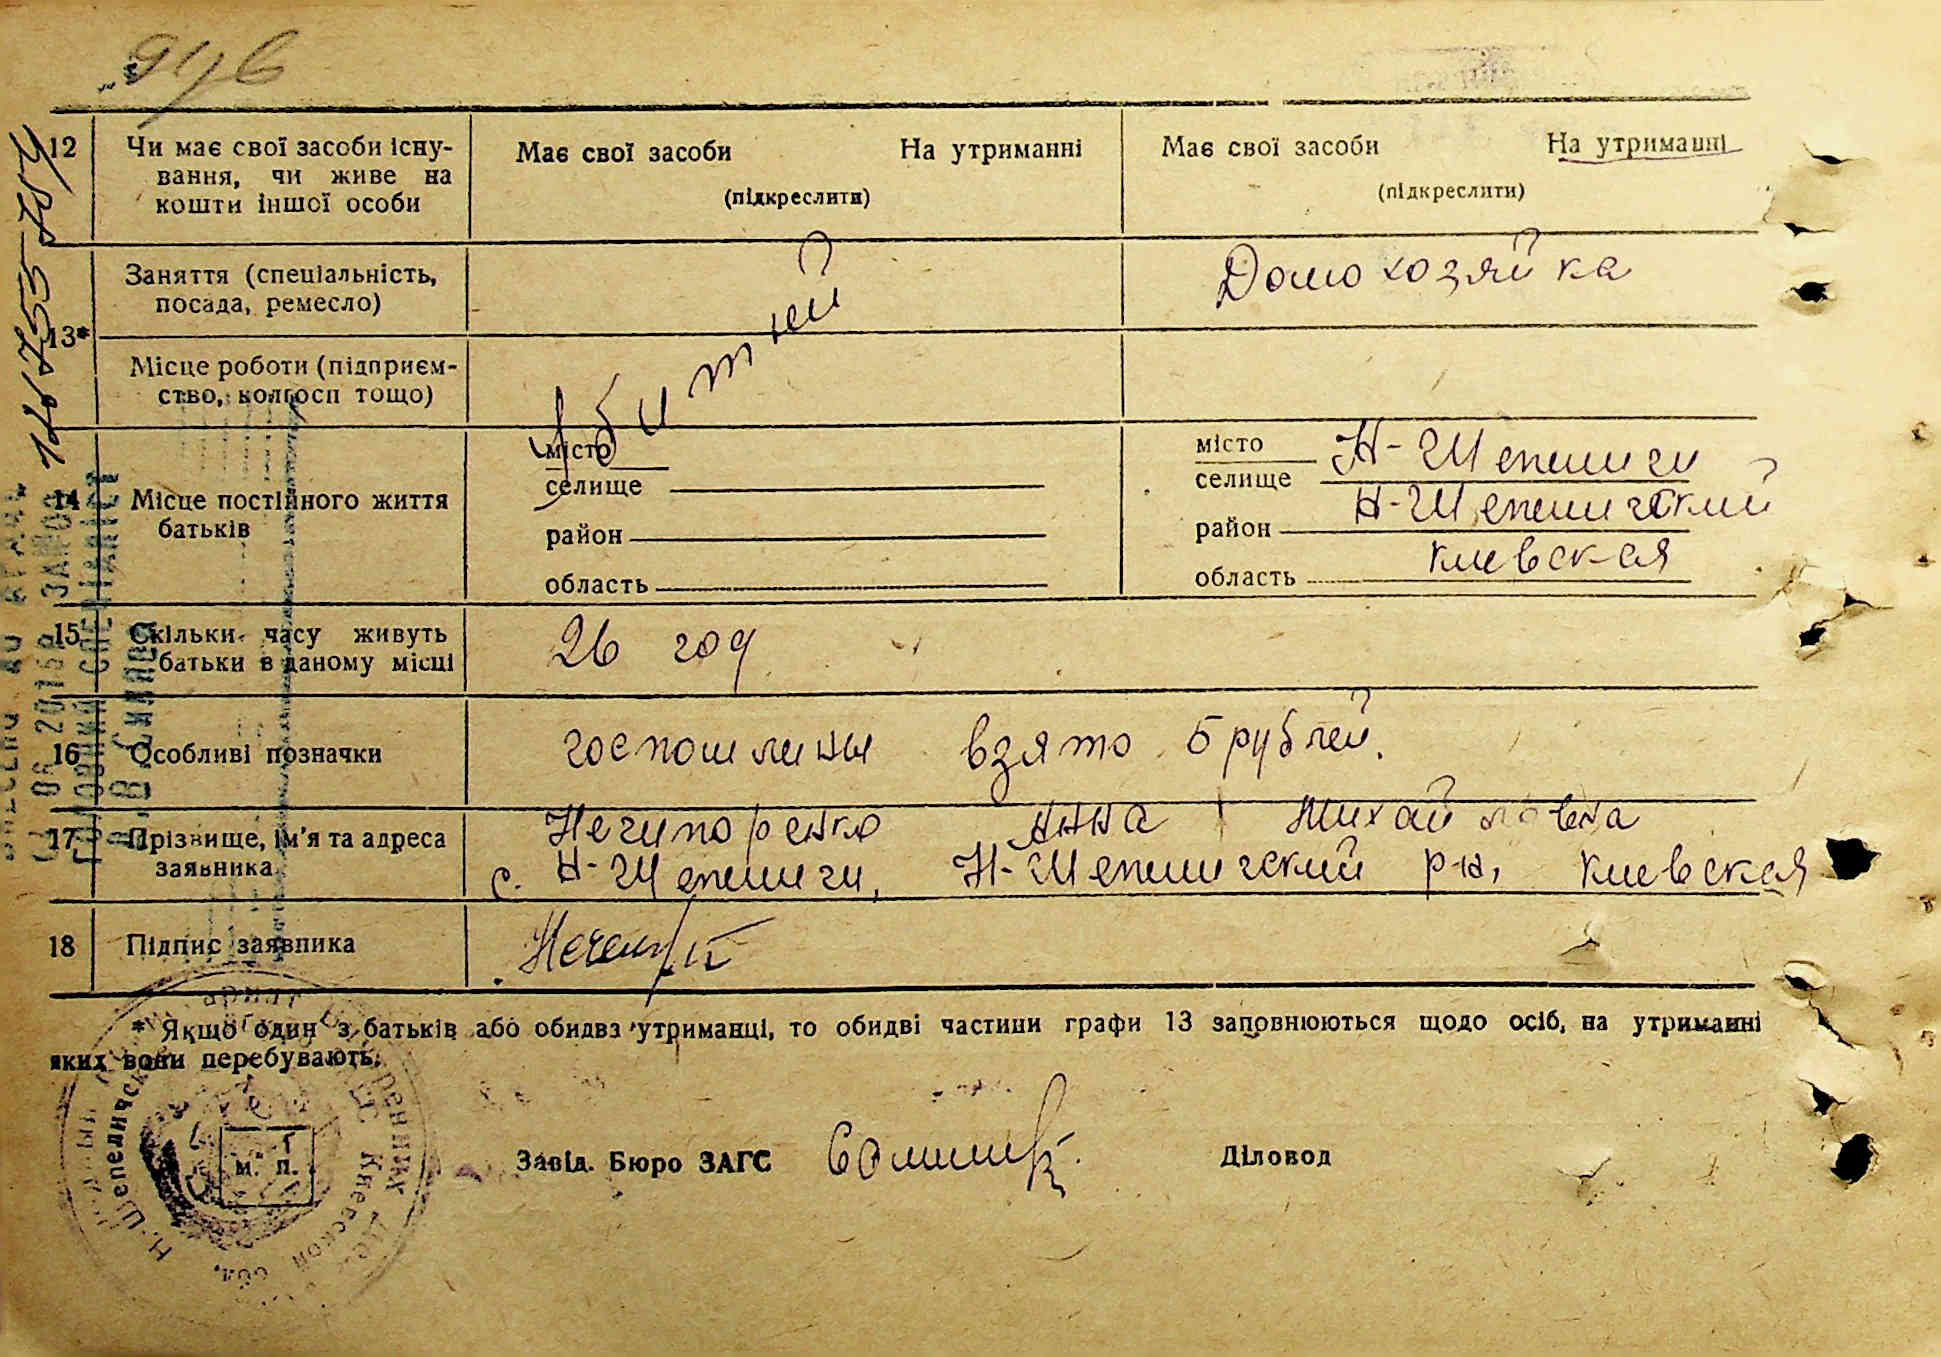 12 Чи має свої засоби існу- Має свої засоби На утриманні Має свої засоби На утриманні
вання, чи живе на (підкреслити) (підкреслити)
кошти іншої особи
Заняття (спеціальність, Домохозяйка
посада, ремесло)
13*
Місце роботи (підприєм-
ство, колгосп тощо)
убитый
місто місто Н-Шепеличи
14 Місце постійного життя селище селище
батьків район район Н-Шепеличский
область область киевская
15 Скільки часу живуть 26 год
батьки в даному місці
16 Особливі позначки госпошлины взято 5 рублей.
17 Прізвище, ім'я та адреса Нечипоренко Анна Михайловна
заявника с. Н-Шепеличи, Н-Шепеличский р-н, киевская
18 Підпис заявника
* Якщо один з батьків або обидва утриманці, то обидві частини графи 13 заповнюються щодо осіб, на утриманні
яких вони перебувають.
м. п. Завід. Бюро ЗАГС Діловод
Н.-Шепеличск
Киевской обл.